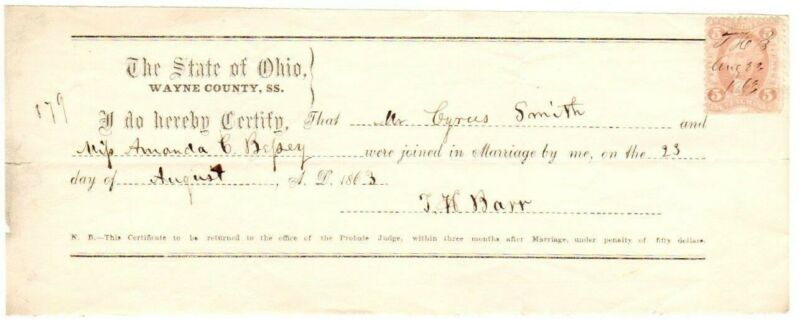 The State of Ohio,
WAYNE COUNTY, SS.
179
I do hereby Certify, That Mr Cyrus Smith and
Miss Amanda C. Bessey were joined in Marriage by me, on the 23
day of August, A. D. 1863
T. H. Barr
N. B.—This Certificate to be returned to the office of the Probate Judge, within three months after Marriage, under penalty of fifty dollars.
5 5
T H B
Aug 23
1863
5 5